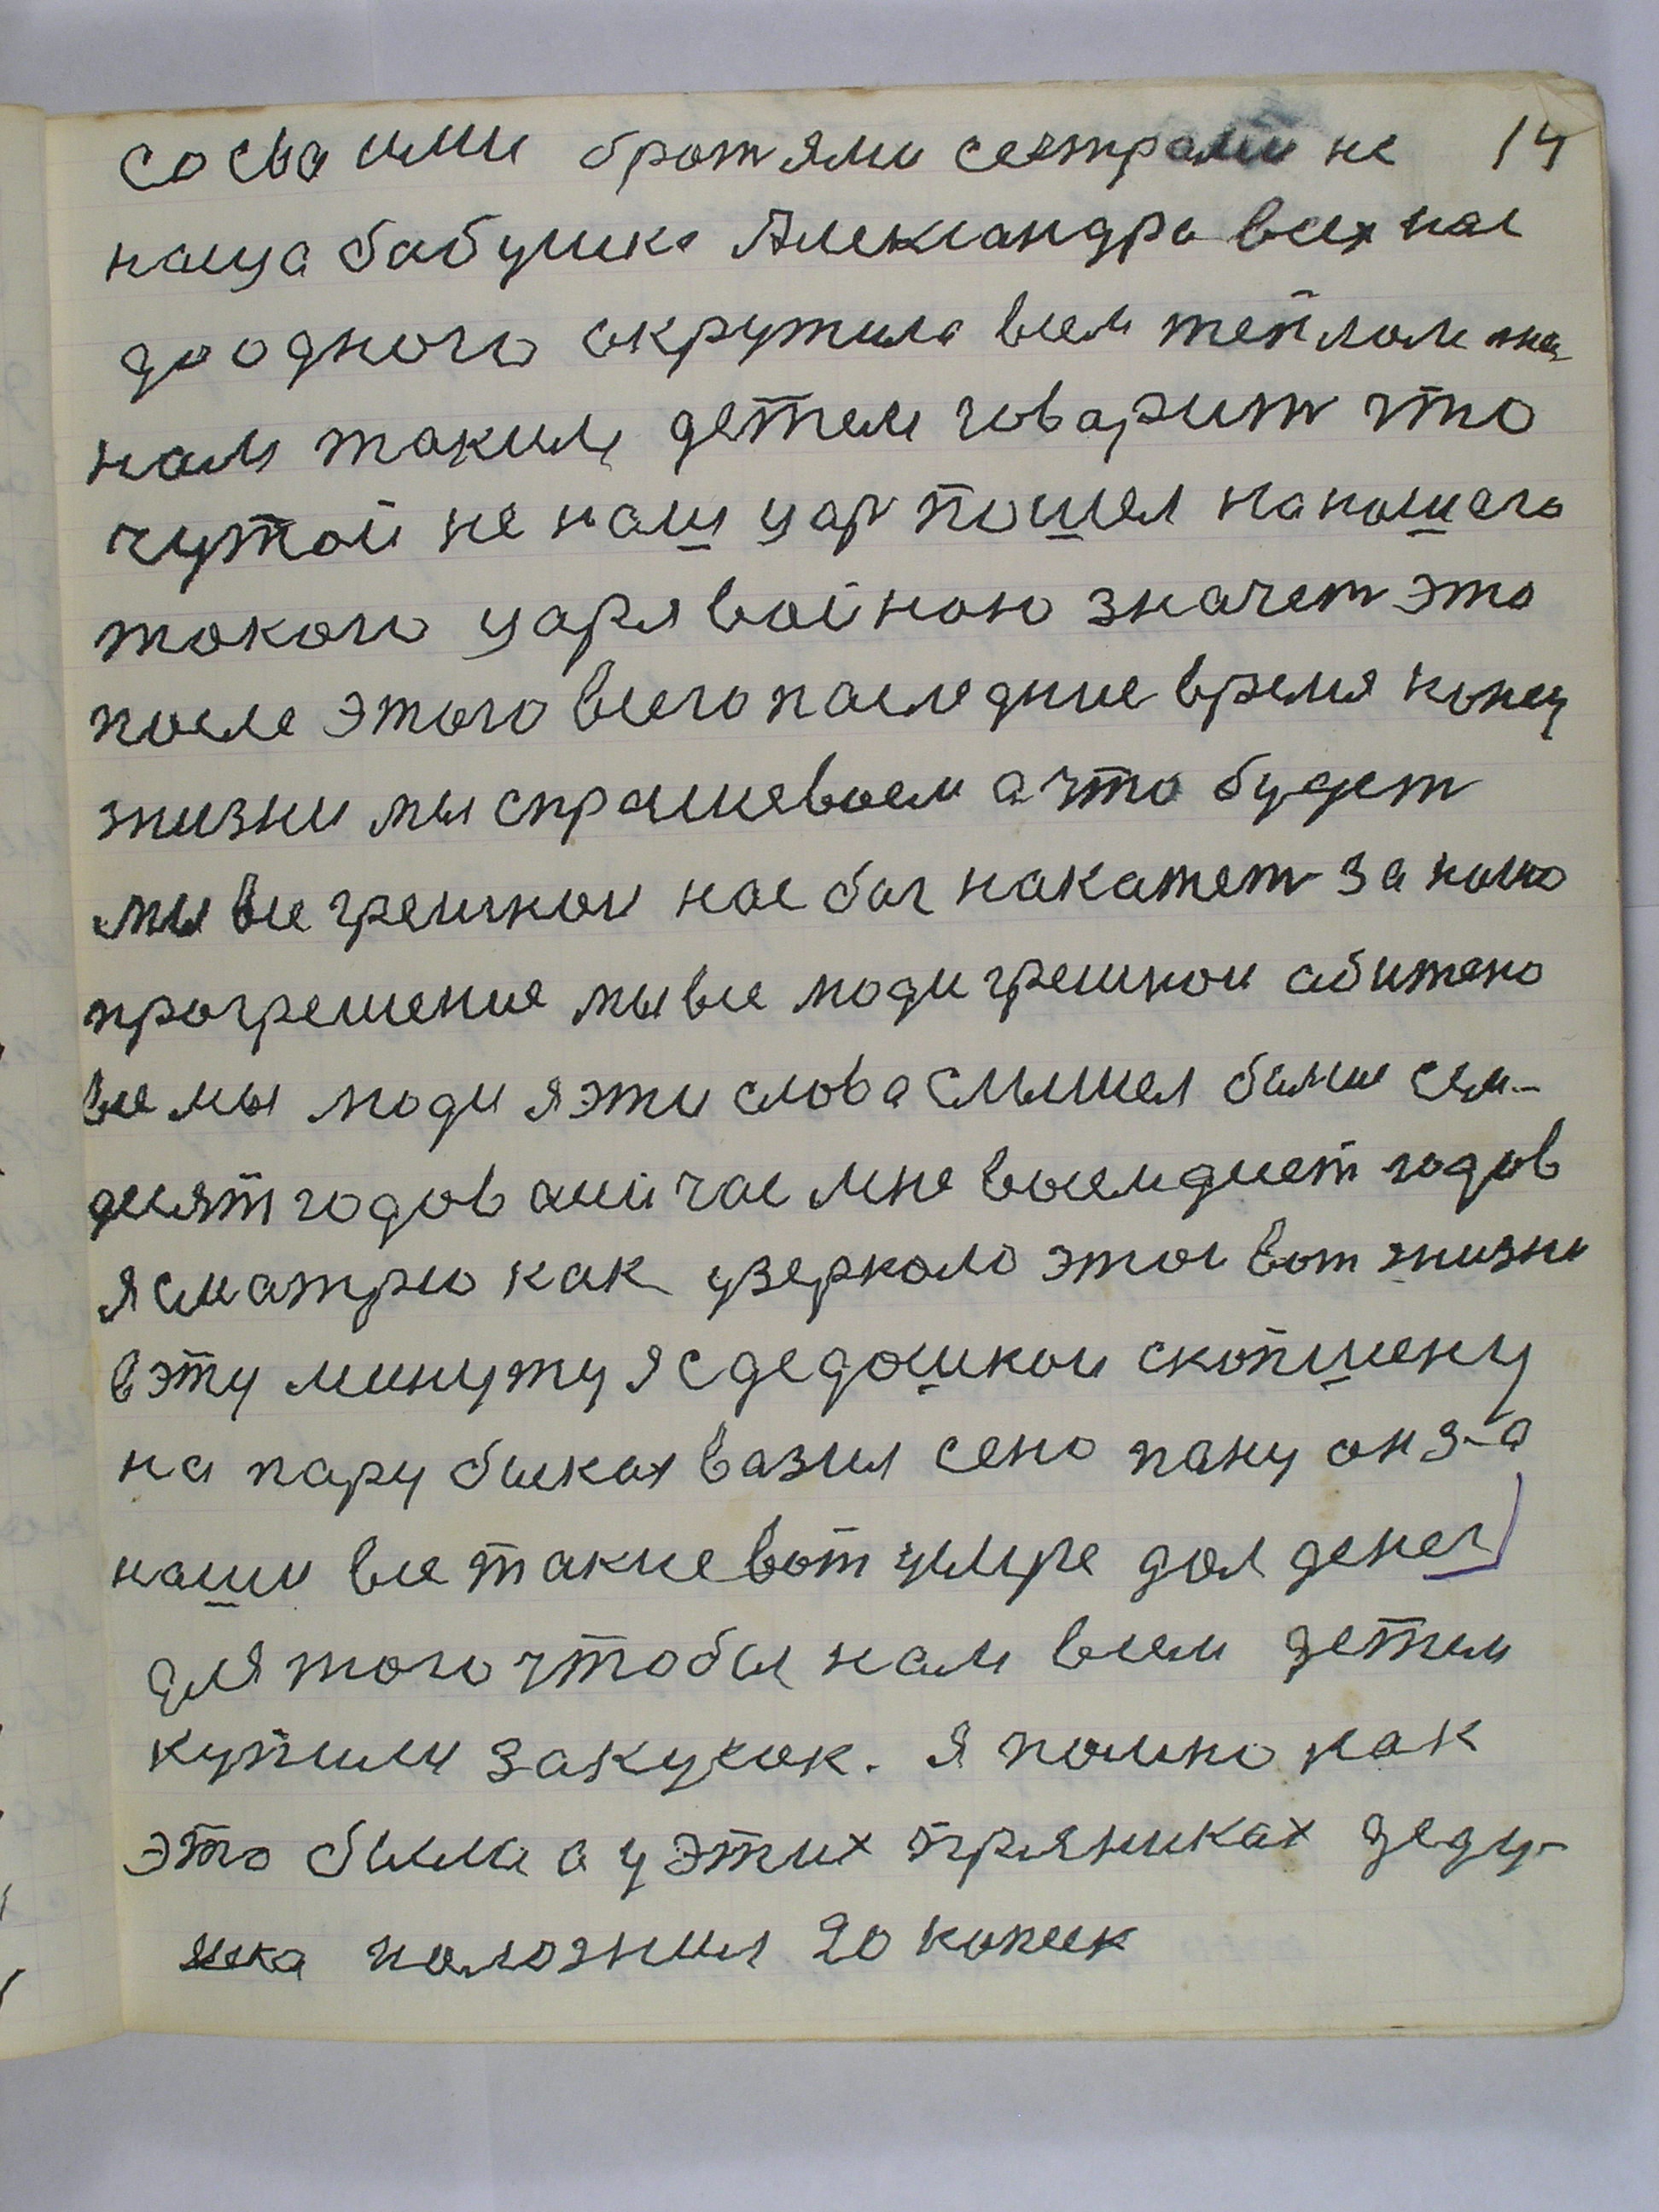 со сваими братями сестрами не 14
наша бабушка Александра всех нас
до одного скрутила всем теплом
нам таким детем говарит что
чутой не наш цар пошел на нашего
токого царя войною значет это
после этого всего паследние время конец
жизни мы спрашеваем а что будет
мы все грешнои нас бог накажет за наше
прогрешение мы все люди грешнои обижено
все мы люди я эти слова слышел были сем-
десят годов а сичас мне восемдисет годов
я сматрю как узеркало этои вот жизни
в эту минуту я с дедошкои с копшену
на пару быках вазил сено пану он за
наши все такие вот умре дал денег
для того чтобы нам всем детем
купили закусок. Я помню как
это была а у этих пряниках деду-
шка положил 20 копеек